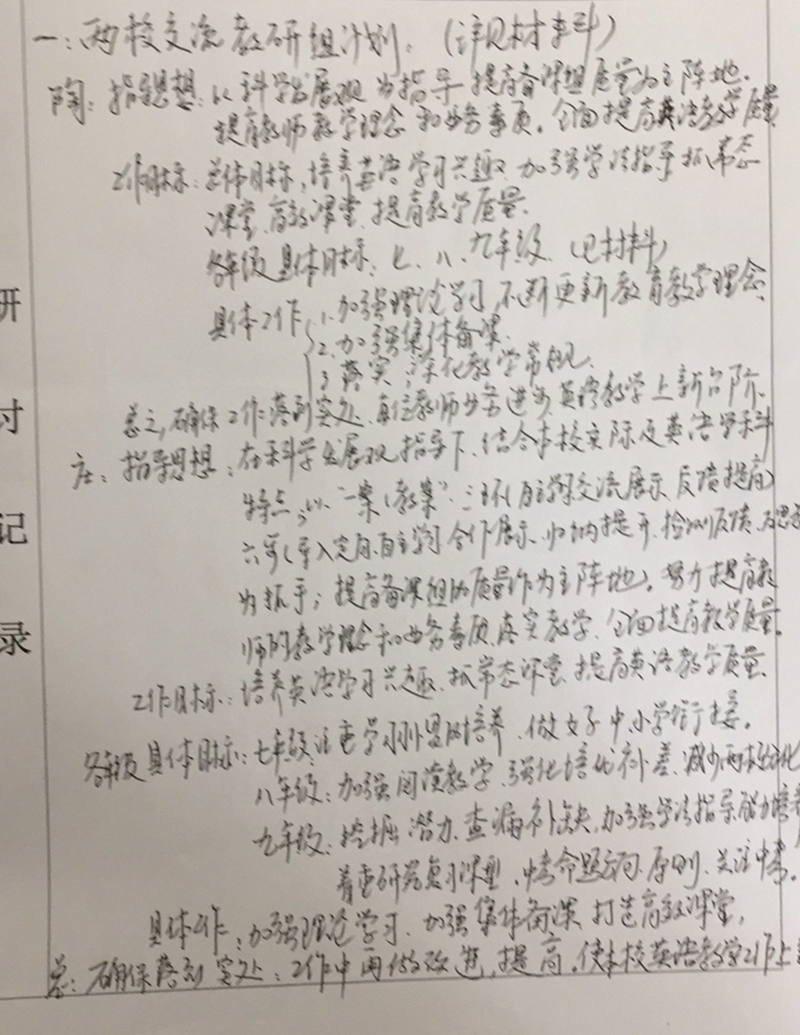 一：两校交流教研组计划。（详见材料）
陶：指导思想：以科学发展观为指导 提高备课组质量为主阵地.
提高教师教学理念和业务素质。全面提高英语教学质量
工作目标：总体目标，培养英语学习兴趣 加强学法指导 抓常态
课堂、高效课堂，提高教学质量.
各年级具体目标：七、八、九年级.（见材料）
具体工作 1.加强理论学习，不断更新教育教学理念.
2.加强集体备课.
3 落实，深化教学常规.
总之，确保工作落到实处，每位教师业务进步 英语教学上新台阶.
庄：指导思想：在科学发展观指导下，结合本校实际及英语学科
特点，以"一案（教案）"三环（自主学习交流展示 反馈提高）
六步（导入定向、自主学习 合作展示、归纳提升、检测反馈、反思
为抓手；提高备课组的质量作为主阵地。努力提高教
师的教学理念和业务素质 真实教学、全面提高教学质量.
工作目标：培养英语学习兴趣，抓常态课堂 提高英语教学质量.
各年级具体目标：七年级：注重学习习惯的培养，做好中小学衔接.
八年级：加强阅读教学，强化培优补差、减少两极分化
九年级：挖掘潜力，查漏补缺，加强学法指导 能力培养
着重研究复习课型，中考命题方向、原则、关注中考.
具体工作：加强理论学习，加强集体备课 打造高效课堂,
总：确保落到实处：工作中再做改进，提高，使本校英语教学工作上
研
讨
记
录